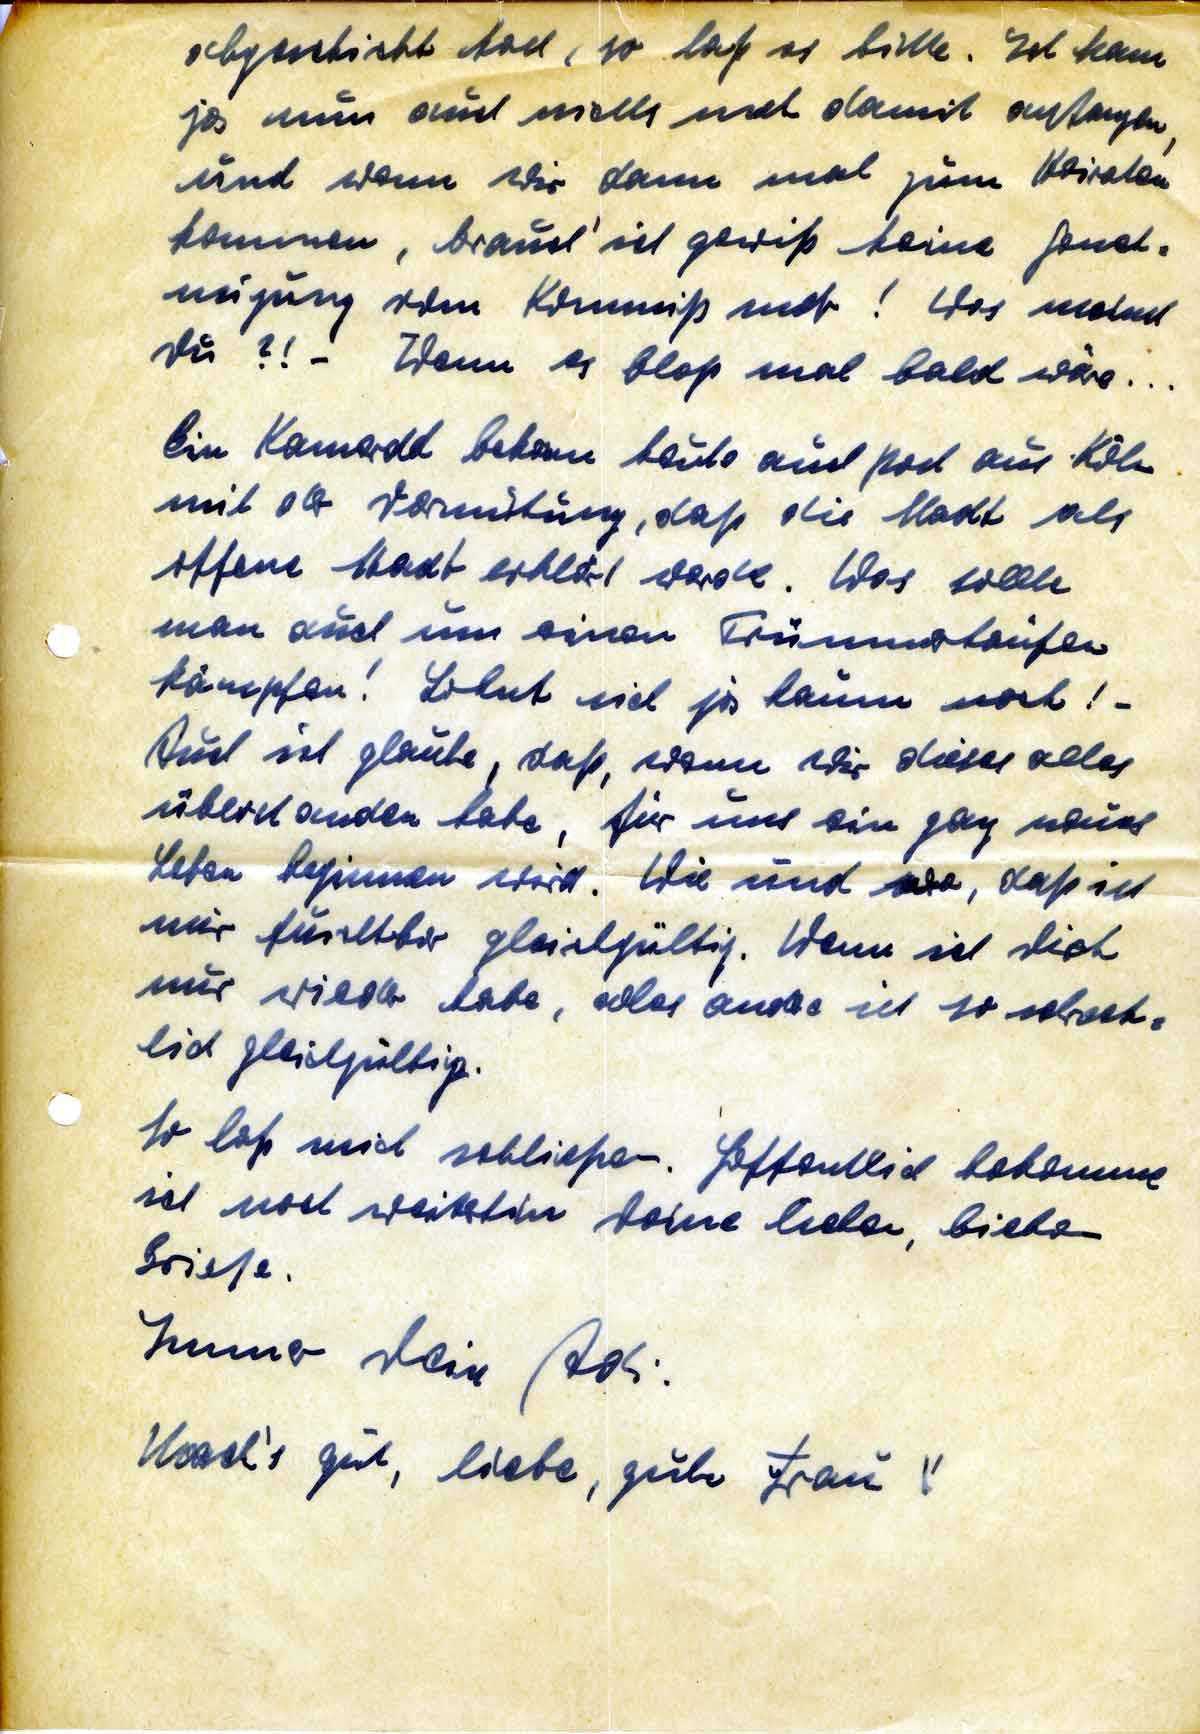 abgeschickt hast, so laß es bitte. Ich kann
ja nun auch nichts mehr damit anfangen,
und wenn wir dann mal zum Heiraten
kommen, brauch' ich gewiß keine Geneh-
migung vom Kommiß mehr! Was meinst
Du?!- Wenn es bloß mal bald wäre...
Ein Kamerad bekam heute auch Post aus Köln
mit der Vermutung, daß die Stadt als
offene Stadt erklärt werde. Was sollte
man auch um einen Trümmerhaufen
kämpfen! Lohnt sich ja kaum noch!-
Auch ich glaube, daß, wenn wir dieses alles
überstanden habe, für uns ein ganz neues
Leben beginnen wird. Wie und wo, daß ist
mir furchtbar gleichgültig. Wenn ich Dich
nur wieder habe, alles andere ist so schreck-
lich gleichgültig.
So laß mich schließen. Hoffentlich bekomme
ich noch weiterhin Deine lieben, lieben
Briefe.
Immer Dein Adi.
Mach's gut, liebe, gute Frau!!